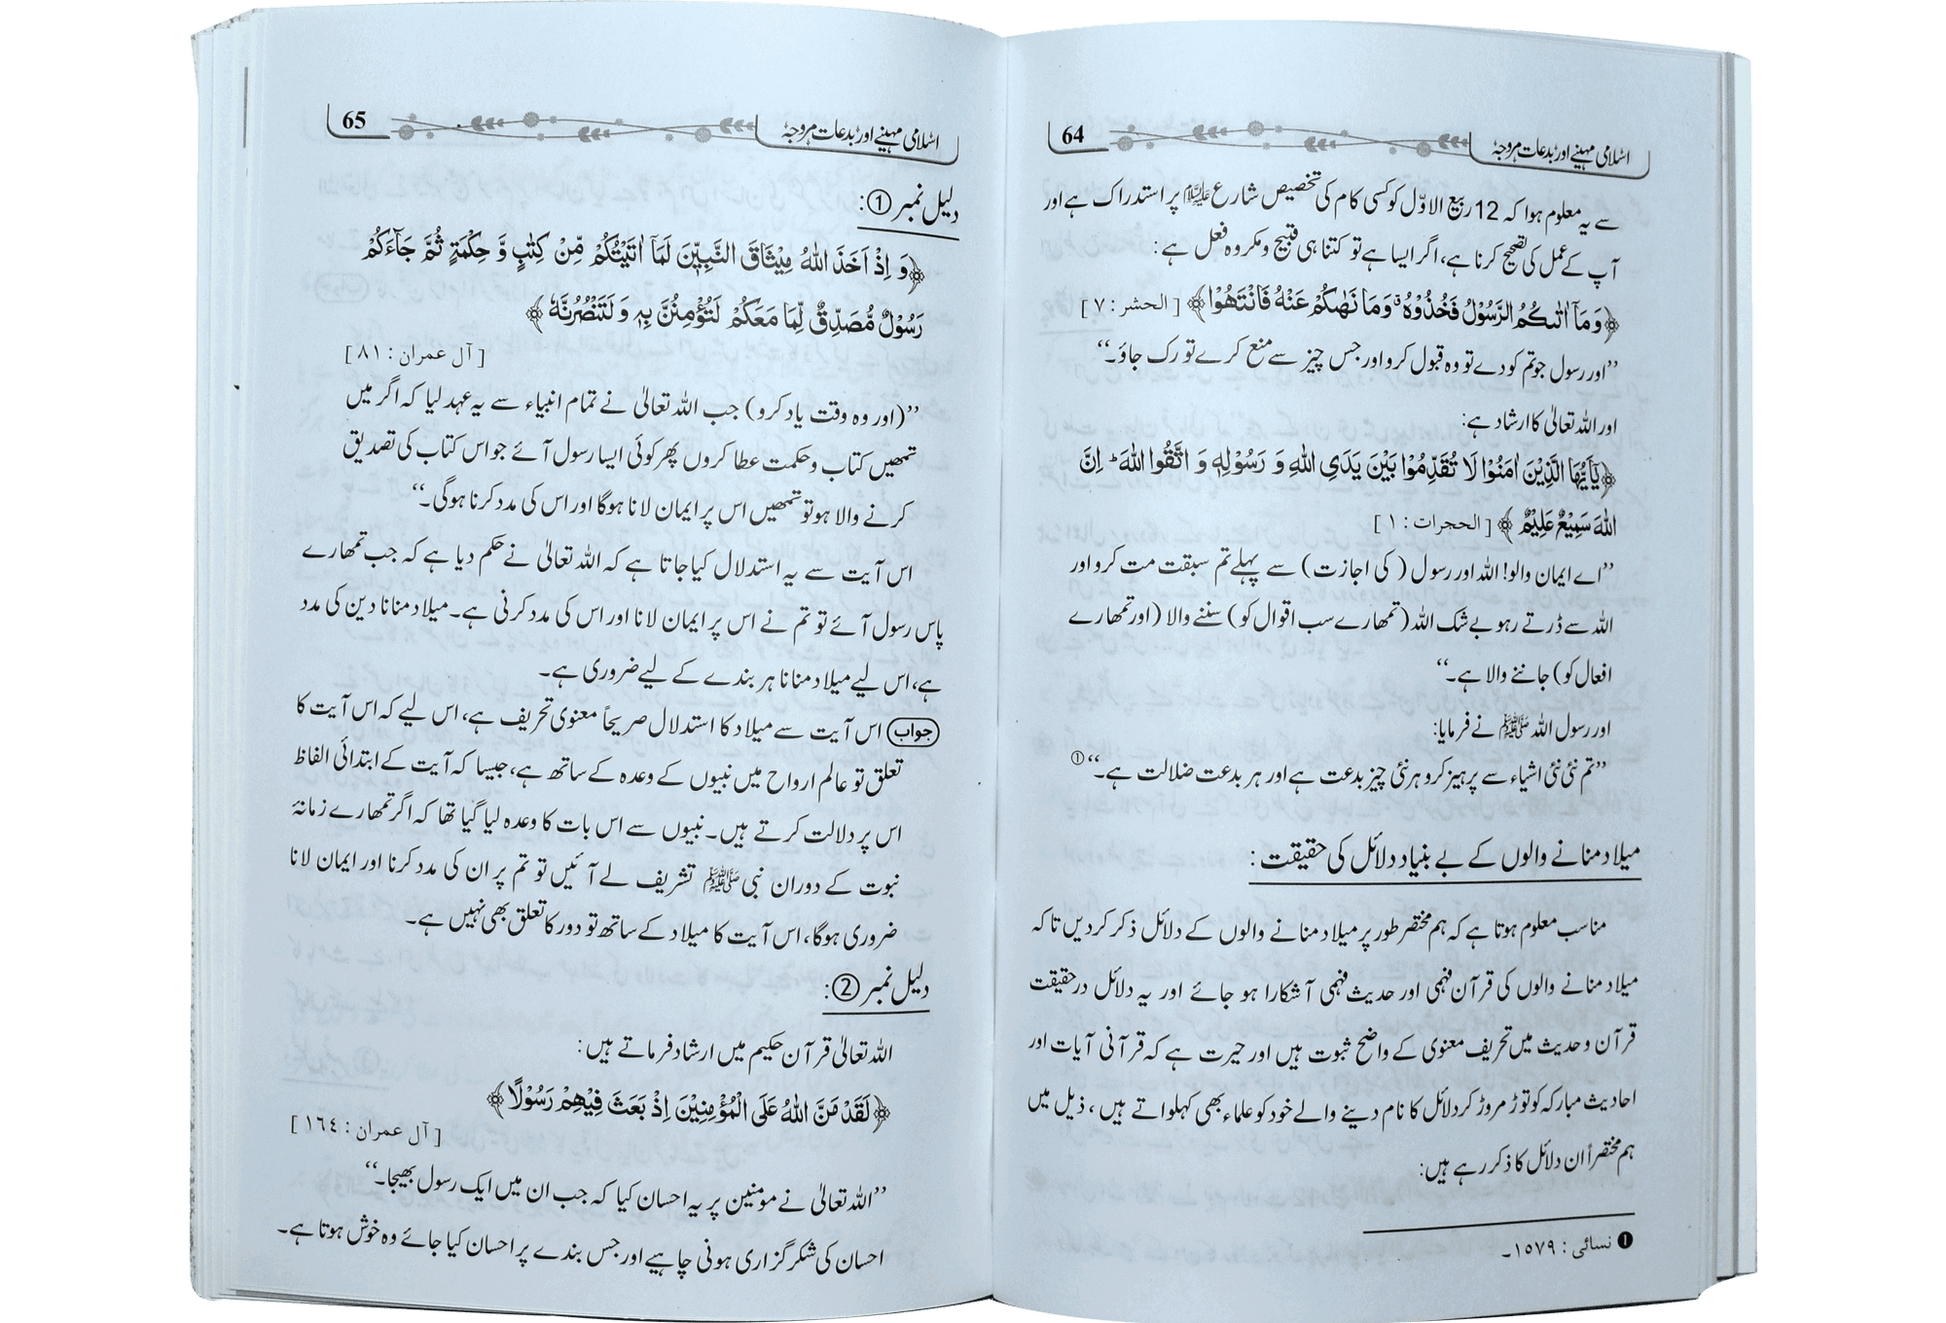 اسلامی مہینے اور بدعات مروجہ
64
سے یہ معلوم ہوا کہ 12 ربیع الاوّل کو کسی کام کی تخصیص شارع علیہ السلام پر استدراک ہے اور
آپ کے عمل کی تصحیح کرنا ہے، اگر ایسا ہے تو کتنا ہی قبیح و مکروہ فعل ہے:
﴿وَمَآ اٰتٰىكُمُ الرَّسُوْلُ فَخُذُوْهُ ۗ وَمَا نَهٰىكُمْ عَنْهُ فَانْتَهُوْا﴾ [الحشر : ٧]
’’اور رسول جو تم کو دے تو وہ قبول کرو اور جس چیز سے منع کرے تو رک جاؤ۔‘‘
اور اللہ تعالیٰ کا ارشاد ہے:
﴿يٰٓاَيُّهَا الَّذِيْنَ اٰمَنُوْا لَا تُقَدِّمُوْا بَيْنَ يَدَيِ اللّٰهِ وَ رَسُوْلِهٖ وَ اتَّقُوا اللّٰهَ ؕ اِنَّ
اللّٰهَ سَمِيْعٌ عَلِيْمٌ﴾ [الحجرات : ١]
’’اے ایمان والو! اللہ اور رسول (کی اجازت) سے پہلے تم سبقت مت کرو اور
اللہ سے ڈرتے رہو بے شک اللہ (تمھارے سب اقوال کو) سننے والا (اور تمھارے
افعال کو) جاننے والا ہے۔‘‘
اور رسول اللہ ﷺ نے فرمایا:
’’تم نئی نئی اشیاء سے پرہیز کرو ہر نئی چیز بدعت ہے اور ہر بدعت ضلالت ہے۔‘‘ ①
میلاد منانے والوں کے بے بنیاد دلائل کی حقیقت:
مناسب معلوم ہوتا ہے کہ ہم مختصر طور پر میلاد منانے والوں کے دلائل ذکر کر دیں تا کہ
میلاد منانے والوں کی قرآن فہمی اور حدیث فہمی آشکارا ہو جائے اور یہ دلائل درحقیقت
قرآن و حدیث میں تحریف معنوی کے واضح ثبوت ہیں اور حیرت ہے کہ قرآنی آیات اور
احادیث مبارکہ کو توڑ مروڑ کر دلائل کا نام دینے والے خود کو علماء بھی کہلواتے ہیں، ذیل میں
ہم مختصراً ان دلائل کا ذکر رہے ہیں:
❶ نسائی : ١٥٧٩۔
اسلامی مہینے اور بدعات مروجہ
65
دلیل نمبر ①:
﴿وَ اِذْ اَخَذَ اللّٰهُ مِيْثَاقَ النَّبِيّٖنَ لَمَآ اٰتَيْتُكُمْ مِّنْ كِتٰبٍ وَّ حِكْمَةٍ ثُمَّ جَآءَكُمْ
رَسُوْلٌ مُّصَدِّقٌ لِّمَا مَعَكُمْ لَتُؤْمِنُنَّ بِهٖ وَ لَتَنْصُرُنَّهٗ﴾
[آل عمران : ٨١]
’’(اور وہ وقت یاد کرو) جب اللہ تعالیٰ نے تمام انبیاء سے یہ عہد لیا کہ اگر میں
تمھیں کتاب و حکمت عطا کروں پھر کوئی ایسا رسول آئے جو اس کتاب کی تصدیق
کرنے والا ہو تو تمھیں اس پر ایمان لانا ہوگا اور اس کی مدد کرنا ہوگی۔‘‘
اس آیت سے یہ استدلال کیا جاتا ہے کہ اللہ تعالیٰ نے حکم دیا ہے کہ جب تمھارے
پاس رسول آئے تو تم نے اس پر ایمان لانا اور اس کی مدد کرنی ہے۔ میلاد منانا دین کی مدد
ہے، اس لیے میلاد منانا ہر بندے کے لیے ضروری ہے۔
جواب اس آیت سے میلاد کا استدلال صریحاً معنوی تحریف ہے، اس لیے کہ اس آیت کا
تعلق تو عالم ارواح میں نبیوں کے وعدہ کے ساتھ ہے، جیسا کہ آیت کے ابتدائی الفاظ
اس پر دلالت کرتے ہیں۔ نبیوں سے اس بات کا وعدہ لیا گیا تھا کہ اگر تمھارے زمانۂ
نبوت کے دوران نبی ﷺ تشریف لے آئیں تو تم پر ان کی مدد کرنا اور ایمان لانا
ضروری ہوگا، اس آیت کا میلاد کے ساتھ تو دور کا تعلق بھی نہیں ہے۔
دلیل نمبر ②:
اللہ تعالیٰ قرآن حکیم میں ارشاد فرماتے ہیں:
﴿لَقَدْ مَنَّ اللّٰهُ عَلَى الْمُؤْمِنِيْنَ اِذْ بَعَثَ فِيْهِمْ رَسُوْلًا﴾
[آل عمران : ١٦٤]
’’اللہ تعالیٰ نے مومنین پر یہ احسان کیا کہ جب ان میں ایک رسول بھیجا۔‘‘
احسان کی شکر گزاری ہونی چاہیے اور جس بندے پر احسان کیا جائے وہ خوش ہوتا ہے۔